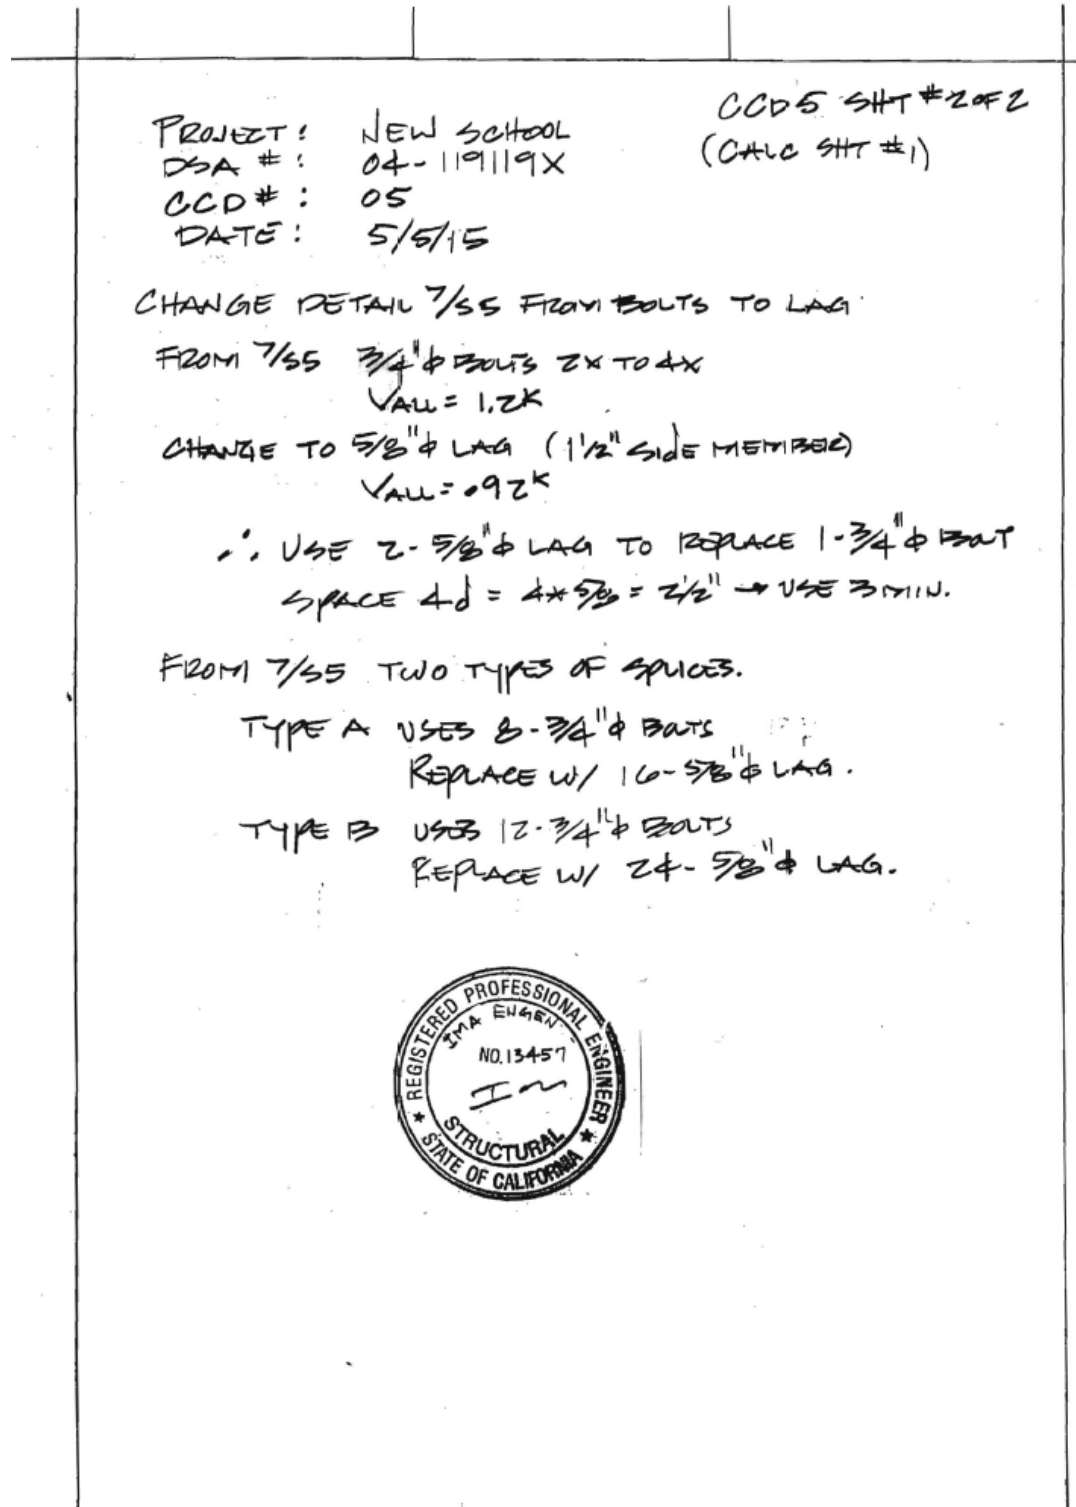 CCD5 SHT #2 OF 2
(CALC SHT #1)
PROJECT: NEW SCHOOL
DSA #: 04-119119X
CCD#: 05
DATE: 5/5/15
CHANGE DETAIL 7/S5 FROM BOLTS TO LAG
FROM 7/S5 3/4"ϕ BOLTS 2X TO 4X
VALL = 1.2K
CHANGE TO 5/8"ϕ LAG (1 1/2" SIDE MEMBER)
VALL = .92K
∴ USE 2-5/8"ϕ LAG TO REPLACE 1-3/4"ϕ BOLT
SPACE 4d = 4*5/8 = 2 1/2" → USE 3 MIN.
FROM 7/S5 TWO TYPES OF SPLICES.
TYPE A USES 8-3/4"ϕ BOLTS
REPLACE W/ 16-5/8"ϕ LAG.
TYPE B USES 12-3/4"ϕ BOLTS
REPLACE W/ 24-5/8"ϕ LAG.
REGISTERED PROFESSIONAL ENGINEER
IMA ENGEN
NO. 13457
STRUCTURAL
STATE OF CALIFORNIA